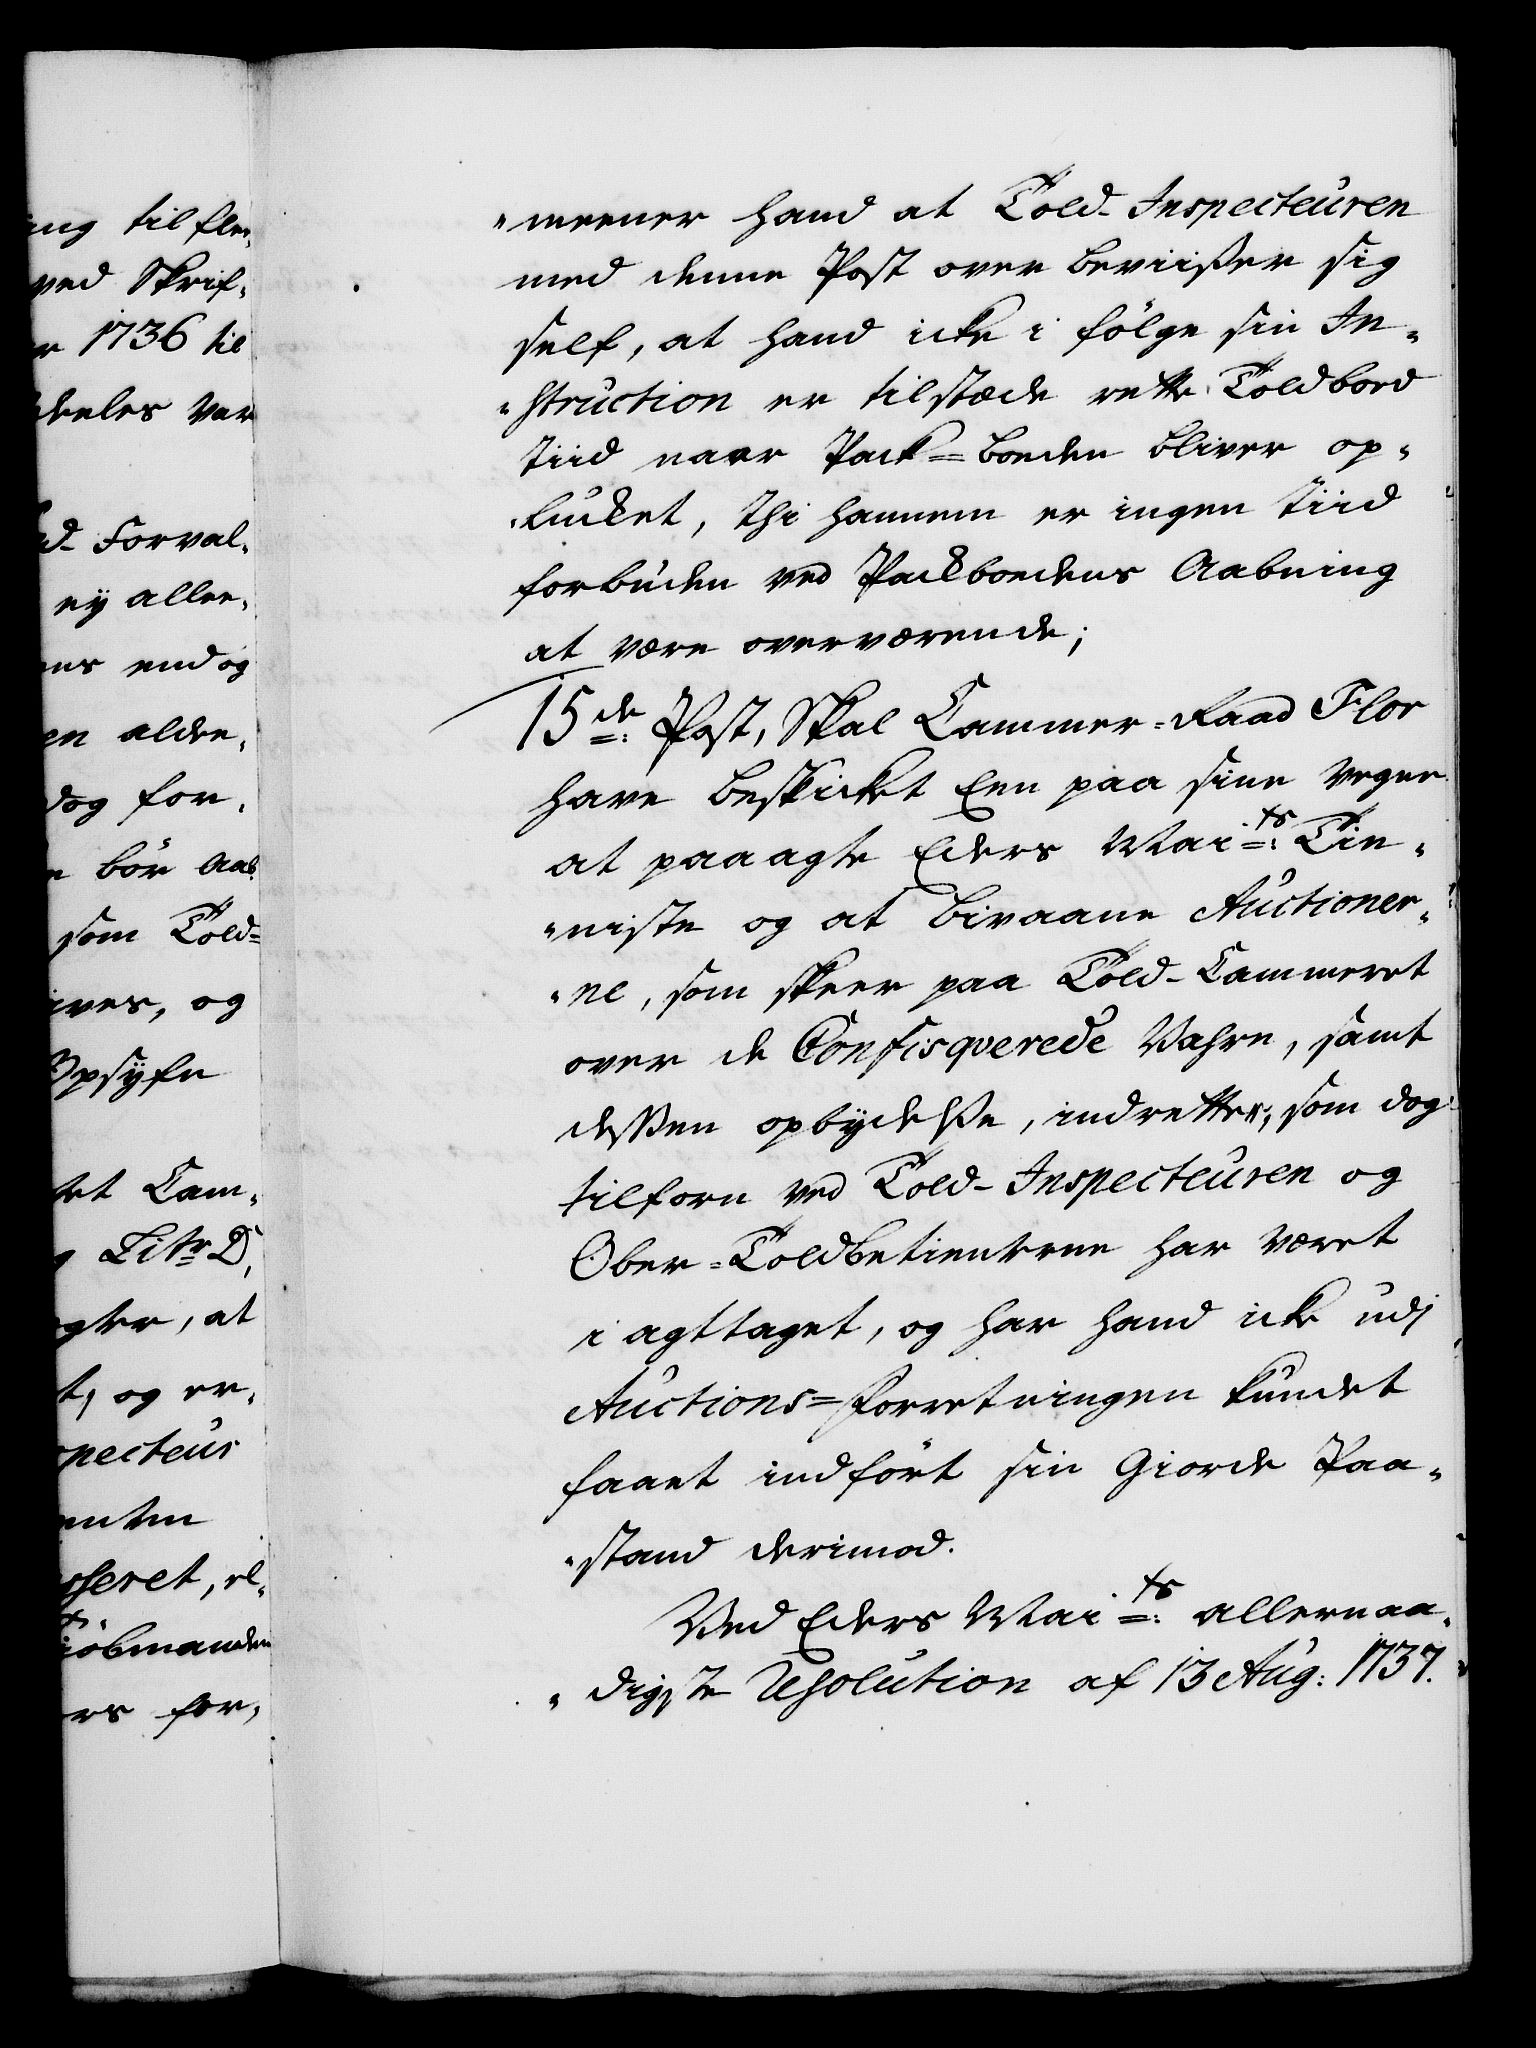 ing til flee,
ved Skrif,
r 1736 til
deeles var
d- Forval,
ey allee,
ens endog
en aldee,
dog for,
bör Aab
som Told=
ives, og
Opsyfn
et Cam,
Litr D,
gter, at
t, og er,
specteur
enten
sseret, el,
kiöbmanden
rs for,
"meener hand at Told-Inspecteuren
med denne Post over beviißer sig
self, at hand icke i fölge sin In,
"struction er tilstæde rette Toldbord
tiid naar Pack=boeden bliver op,
"lucket, thi hannem er ingen tiid
forbuden ved Packboedens Aabning
at være overværende;
15de: Post, Skal Cammer=Raad Flor
have beskicket Een paa sine vegne
at paaagte Eders Mai=ts: Tie,
"niste og at bivaane Auctioner,
"ne, som skeer paa Told-Cammeret
over de Confisqverede Vahre, samt
dessen opbydelße, indretter, som dog
tilforn ved Told-Inspecteuren og
Ober=Toldbetienterne har været
i agttaget, og har hand icke udj
Auctions=Forretningen kundet
faaet indfört sin Giorde Paa,
"stand derimod.
Ved Eders Mai=ts: allernaa,
"digste Resolution af 13 Aug: 1737.